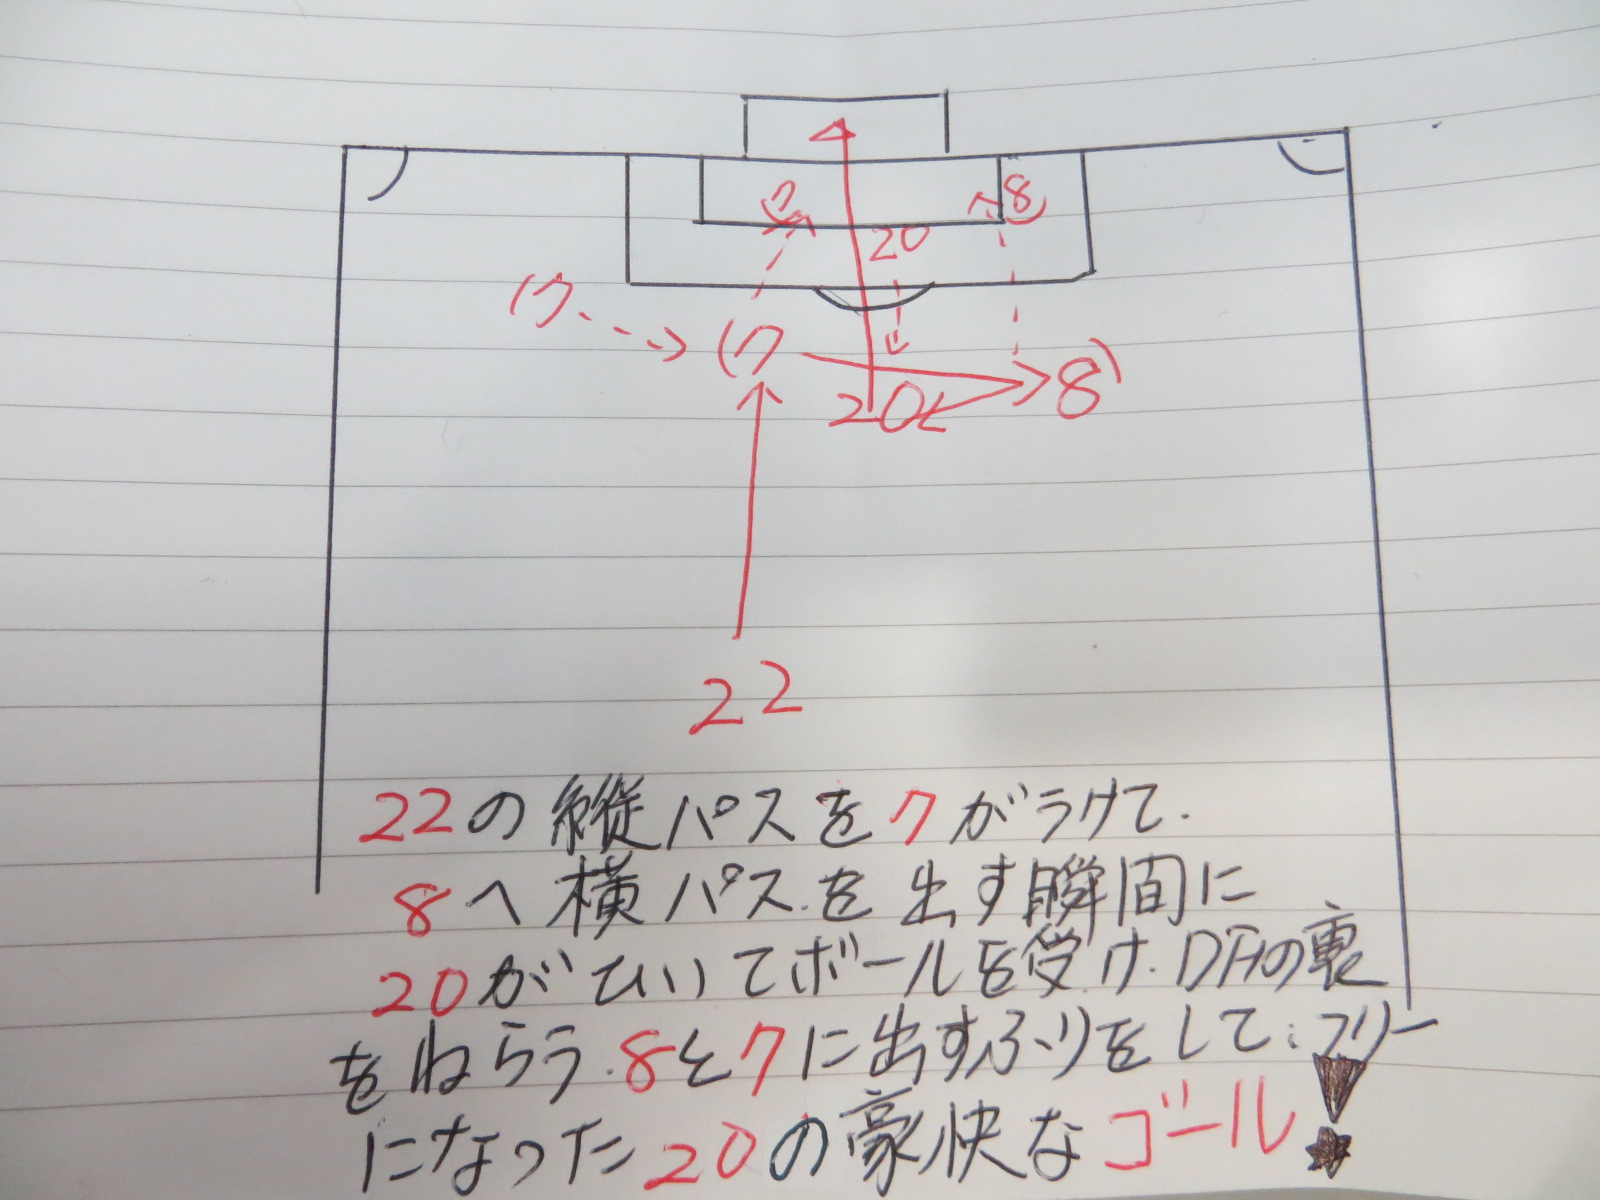 7 8
20
7 7
20 8
22
22の縦パスを7がうけて.
8へ横パスを出す瞬間に
20がひいてボールを受け.DFの裏
をねらう.8と7に出すふりをして.フリー
になった20の豪快なゴール!